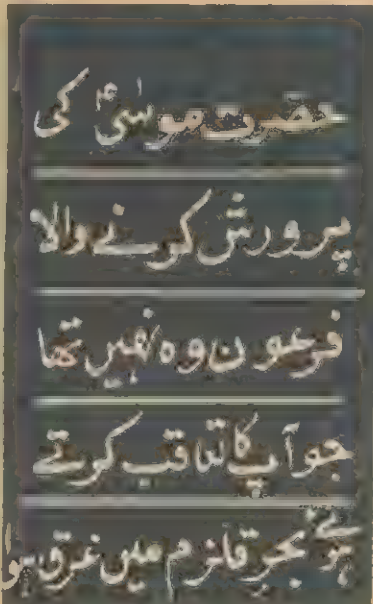 حضرت موسٰیؑ کی
پرورش کرنے والا
فرعون وہ نہیں تھا
جو آپ کا تعاقب کرتے
ہوئے بحر قلزم میں غرق ہوا